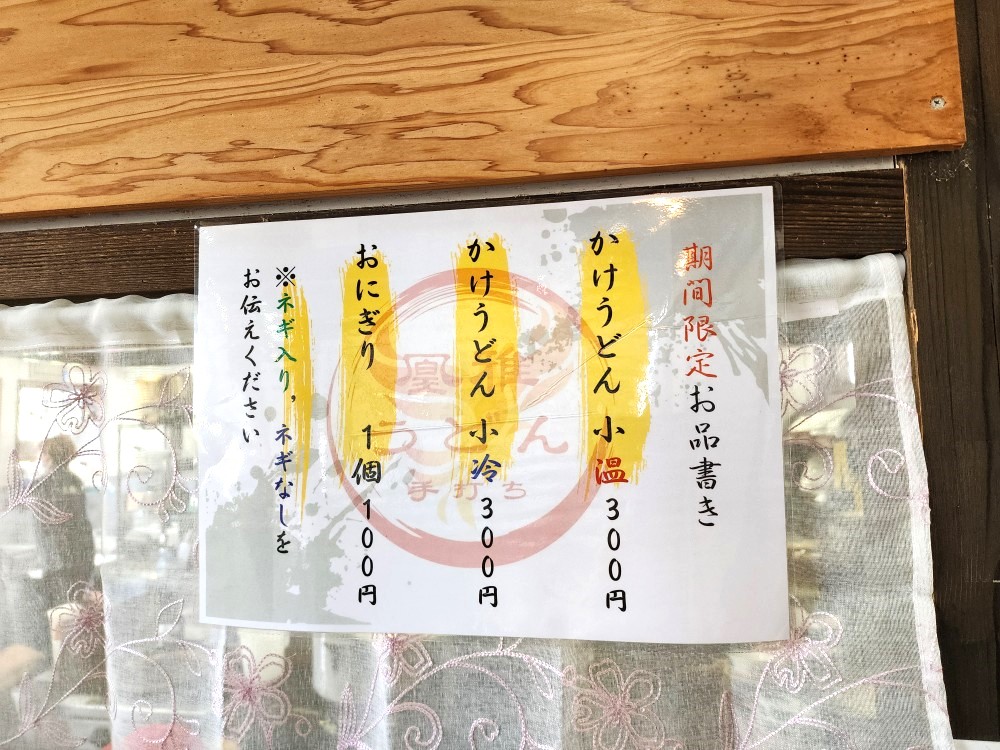 期間限定お品書き
かけうどん 小 温 300円
かけうどん 小 冷 300円
おにぎり 1個 100円
※ネギ入り，ネギなしを
お伝えください
凰雅
うどん
手打ち